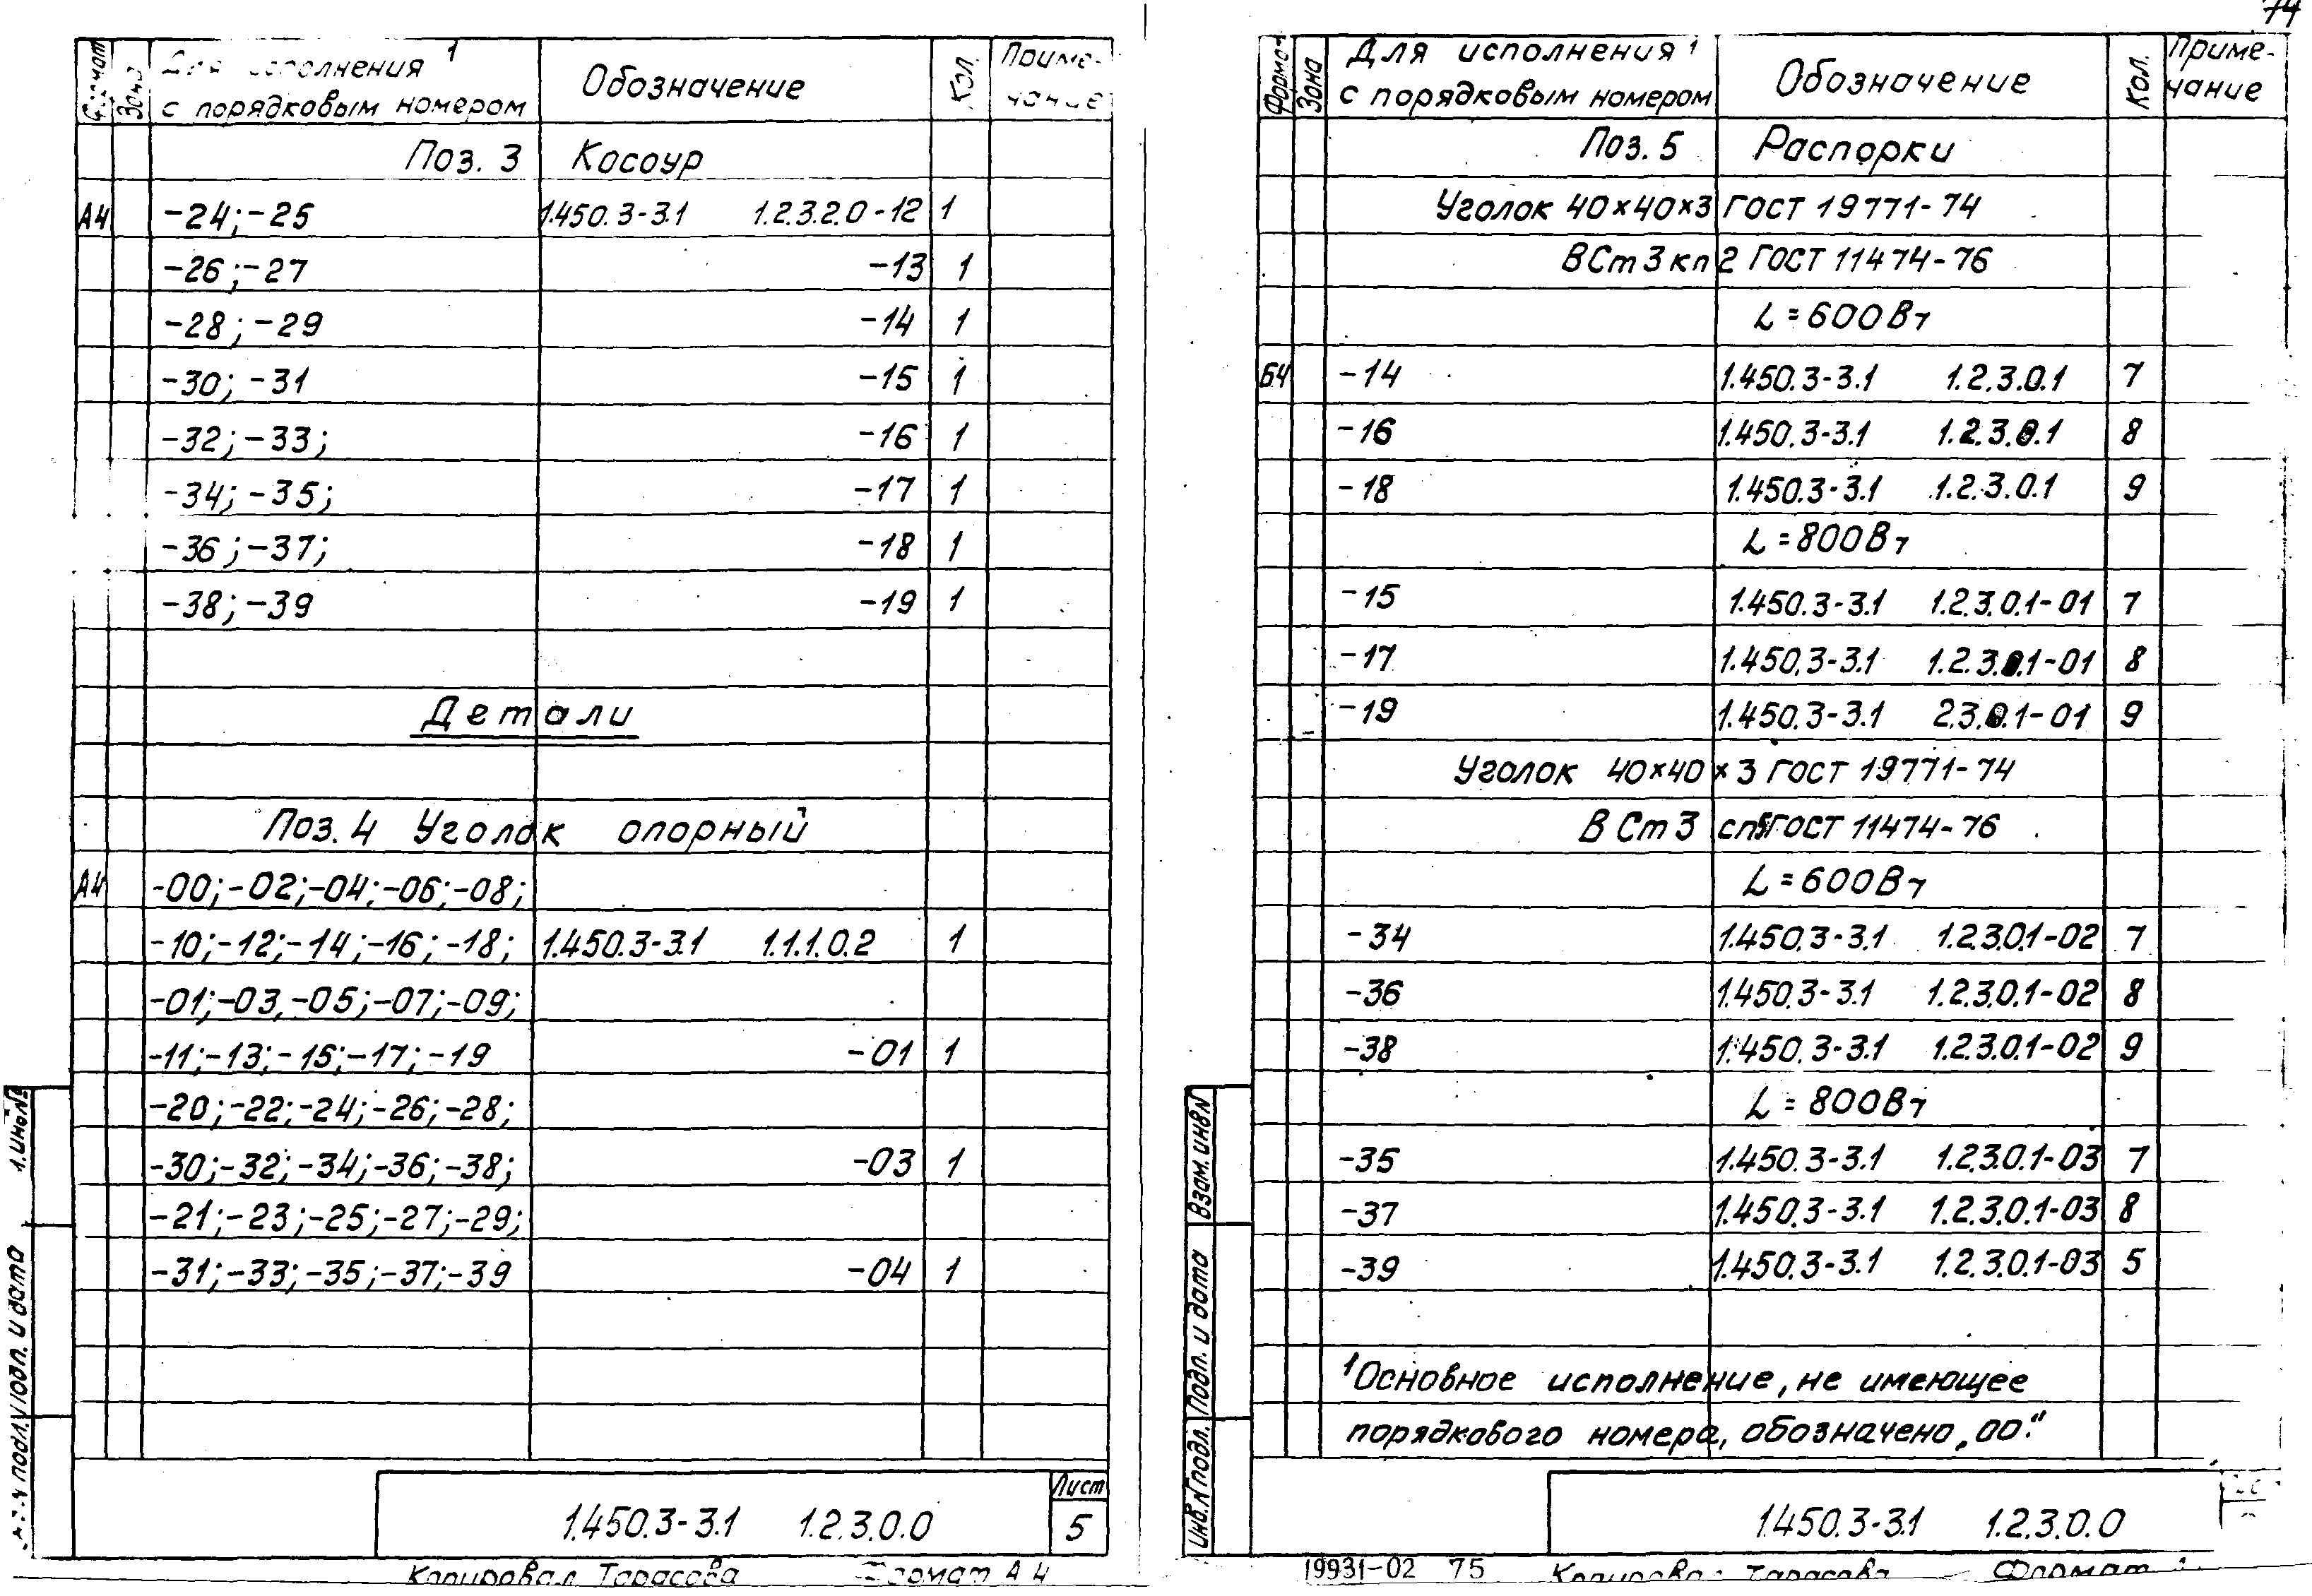 74
Формат Зона Для исполнения ¹ с порядковым номером Обозначение Кол. Приме-чание
Поз. 3 Косоур
А4 -24;-25 1.450.3-3.1 1.2.3.2.0-12 1
-26;-27 -13 1
-28;-29 -14 1
-30;-31 -15 1
-32;-33; -16 1
-34;-35; -17 1
-36;-37; -18 1
-38;-39 -19 1
Детали
Поз. 4 Уголок опорный
А4 -00;-02;-04;-06;-08;
-10;-12;-14;-16;-18; 1.450.3-3.1 1.1.1.0.2 1
-01;-03,-05;-07;-09;
-11;-13;-15;-17;-19 -01 1
-20;-22;-24;-26;-28;
-30;-32;-34;-36;-38; -03 1
-21;-23;-25;-27;-29;
-31;-33;-35;-37;-39 -04 1
Подл. и дата
1.450.3-3.1 1.2.3.0.0
Лист
5
Копировал Тарасова Формат А4
Формат Зона Для исполнения ¹ с порядковым номером Обозначение Кол. Приме-чание
Поз. 5 Распорки
Уголок 40×40×3 ГОСТ 19771-74
ВСт3кп2 ГОСТ 11474-76
L=600Вт
Б4 -14 1.450.3-3.1 1.2.3.0.1 7
-16 1.450.3-3.1 1.2.3.0.1 8
-18 1.450.3-3.1 1.2.3.0.1 9
L=800Вт
-15 1.450.3-3.1 1.2.3.0.1-01 7
-17 1.450.3-3.1 1.2.3.0.1-01 8
-19 1.450.3-3.1 2.3.0.1-01 9
Уголок 40×40×3 ГОСТ 19771-74
ВСт3 сп5 ГОСТ 11474-76
L=600Вт
-34 1.450.3-3.1 1.2.3.0.1-02 7
-36 1.450.3-3.1 1.2.3.0.1-02 8
-38 1.450.3-3.1 1.2.3.0.1-02 9
L=800Вт
-35 1.450.3-3.1 1.2.3.0.1-03 7
-37 1.450.3-3.1 1.2.3.0.1-03 8
-39 1.450.3-3.1 1.2.3.0.1-03 5
¹Основное исполнение, не имеющее
порядкового номера, обозначено „00."
Инв.N подл. Подл. и дата Взам.инвN
1.450.3-3.1 1.2.3.0.0
19931-02 75 Копировал Тарасова Формат